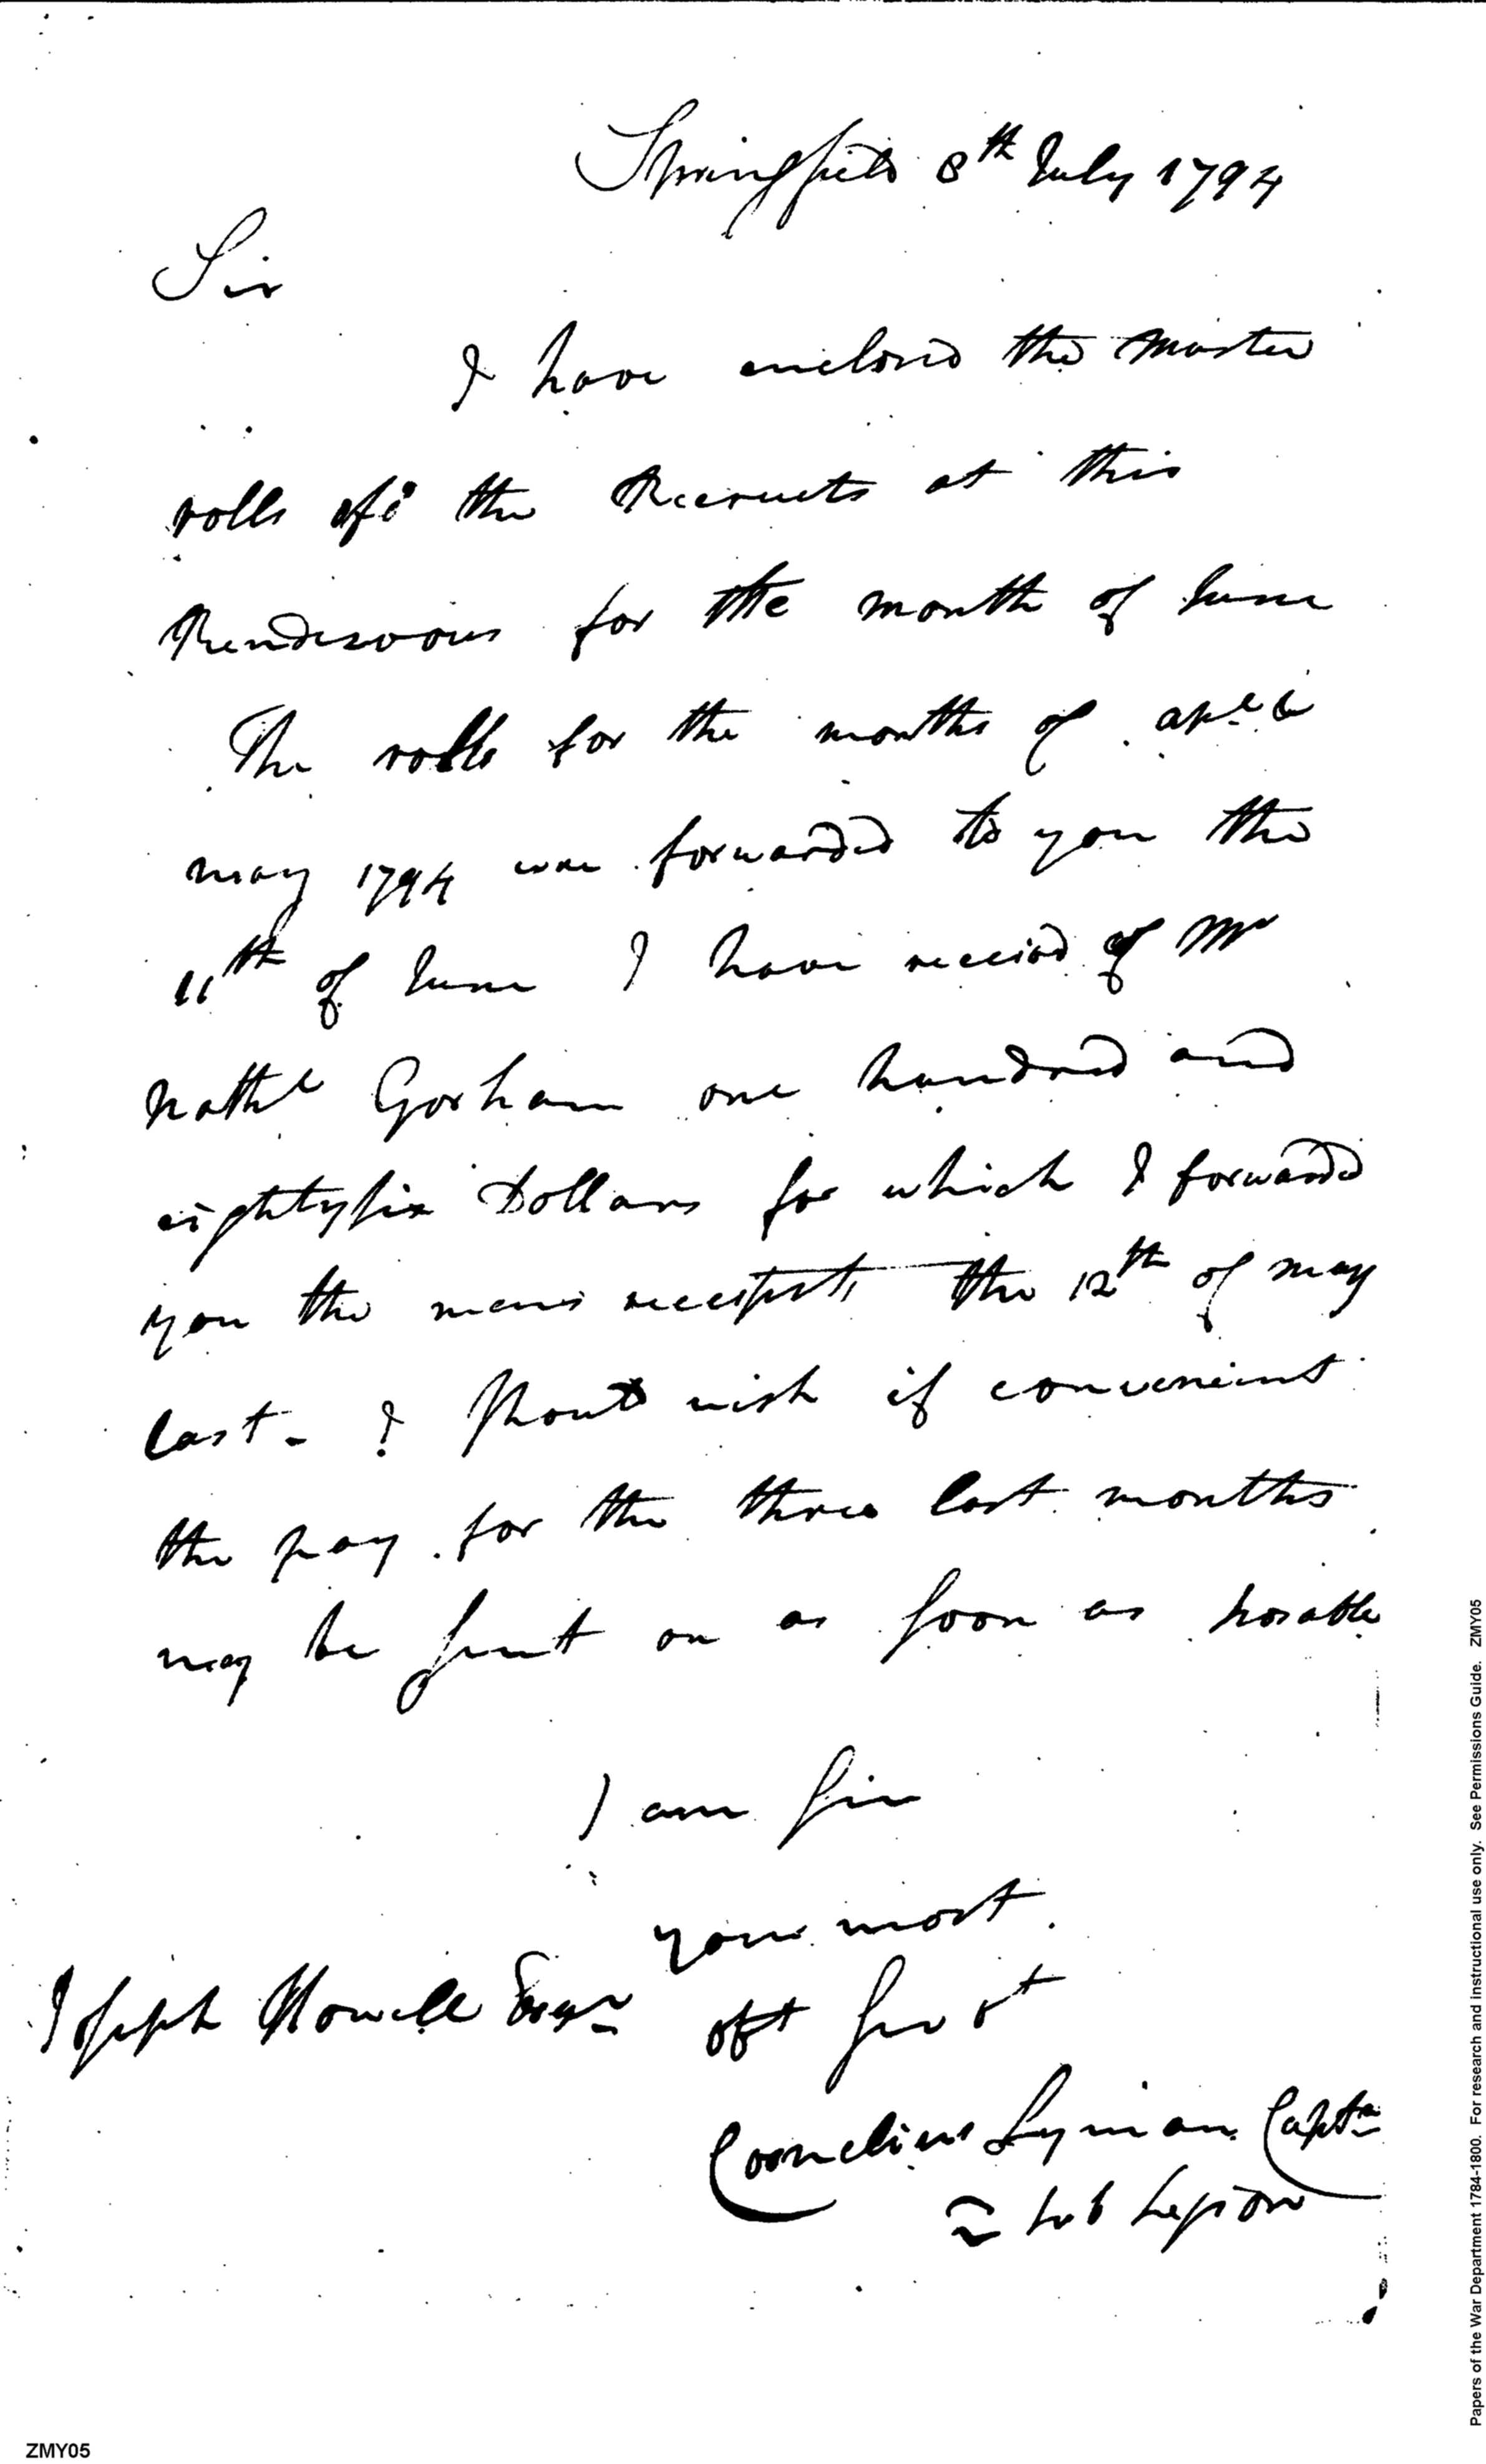 Springfield 8th July 1794
Sir
I have enclosed the Muster
rolls of the Recruits at this
Rendesvous for the month of June
The rolls for the months of apl &
may 1794 were forwarded to you the
11th of June I have receivd of Mr
Nathl Gorham one hundred and
eightysix Dollars for which I forwarded
you the mens receipts the 12th of may
last - I Shoud wish if convenient
the pay for the three last months
may be sent on as soon as posable
I am Sir
your most
Joseph Howell Esqr obt Servt
Cornelius Lyman Captn
2 Sub Legion
Papers of the War Department 1784-1800. For research and instructional use only. See Permissions Guide. ZMY05
ZMY05